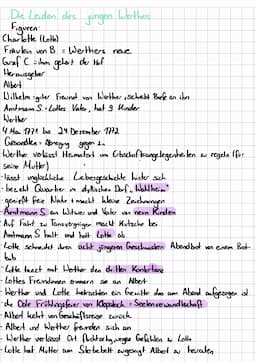 Die Leiden des jungen Werthers
Figuren:
Charlotte (Lotte)
Fräulein von B = Werthers neue
Graf C = ihm gehört der Hof
Herausgeber
Albert
Wilhelm = guter Freund von Werther, schreibt Briefe an ihn
Amtmann S. = Lottes Vater, hat 9 Kinder
Werther
4 Mai 1771 bis 24 Dezember 1772
Gesandte = Abneigung gegen
Werther verlässt Heimatort um Erbschaftsangelegenheiten zu regeln (für
seine Mutter)
- lässt unglückliche Liebesgeschichte hinter sich
- bezieht Quartier im idyllischen Dorf „Wahlheim"
- genießt freie Natur + macht kleine Zeichnungen
- Amtmann S ein Witwer und Vater von neun Kindern
- Auf Fahrt zu Tanzvergnügen macht Kutsche bei
Amtmann S halt und holt Lotte ab
- Lotte schneidet ihren acht jüngeren Geschwistern Abendbrot von einem Brot-
laib
- Lotte tanzt mit Werther den dritten Kontertanz
- Lottes Freundinnen erinnern sie an Albert
- Werther und Lotte betrachten ein Gewitter das am Abend aufgezogen ist
- die Ode Frühlingsfeier von Klopstock = Seelenverwandtschaft
- Albert kehrt von Geschäftsreise zurück
- Albert und Werther freunden sich an
- Werther verlässt Ort Gefühlen zu Lotte
- Lotte hat Mutter am Sterbebett zugesagt Albert zu heiraten